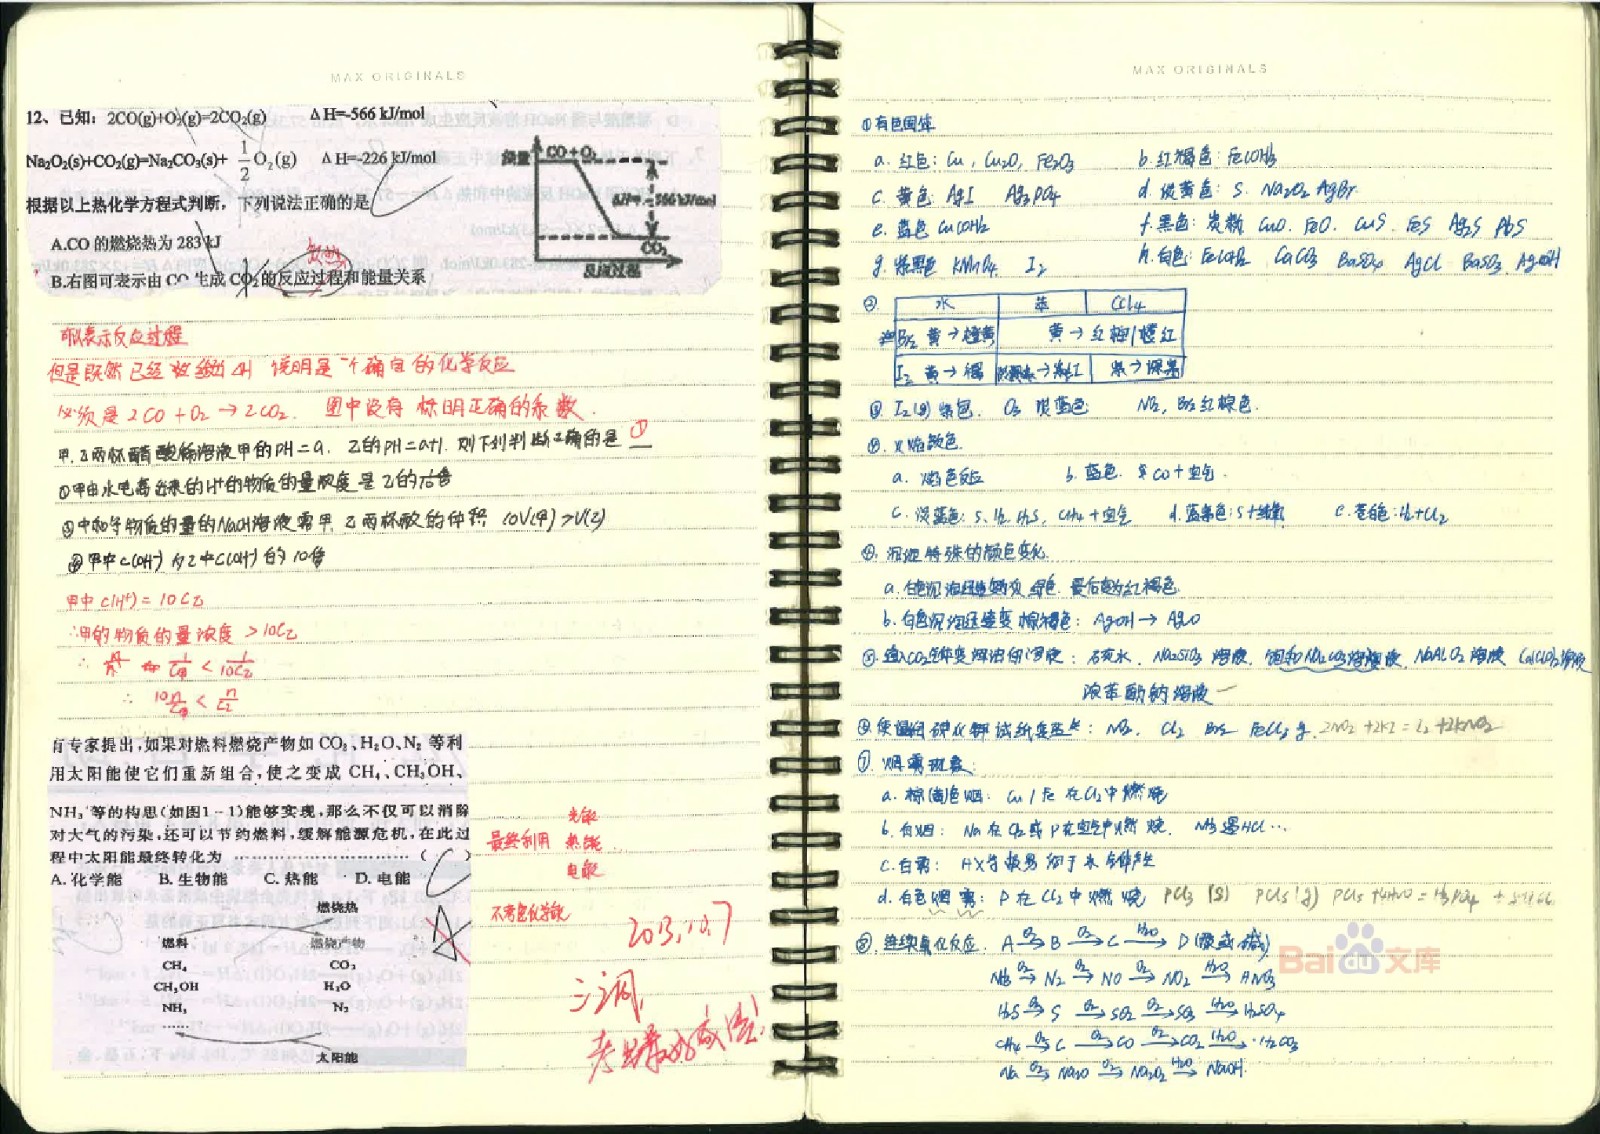 MAX ORIGINALS
12、已知：2CO(g)+O₂(g)=2CO₂(g) ΔH=-566 kJ/mol
Na₂O₂(s)+CO₂(g)=Na₂CO₃(s)+ 1/2 O₂(g) ΔH=-226 kJ/mol
根据以上热化学方程式判断，下列说法正确的是 C
A.CO 的燃烧热为 283 kJ
B.右图可表示由 CO 生成 CO₂的反应过程和能量关系
能量
CO+O₂
ΔH=-566 kJ/mol
CO₂
反应过程
可以表示反应过程
但是既然已经 ΔH 说明是一个确定的化学反应
必须是 2CO + O₂ → 2CO₂. 图中没有标明正确的系数.
甲、乙两杯醋酸稀溶液甲的pH=a. 乙的pH=a+1. 则下列判断正确的是 ①
①甲由水电离出来的H⁺的物质的量浓度是乙的
②中和等物质的量的NaOH溶液需甲、乙两杯酸的体积 10V(甲)>V(乙)
③甲中c(OH⁻)为乙中c(OH⁻)的10倍
甲中 c(H⁺) = 10C乙
∴甲的物质的量浓度 > 10C乙
1/C甲 < 1/10C乙
∴ 10n/C甲 < n/C乙
有专家提出，如果对燃料燃烧产物如 CO₂、H₂O、N₂ 等利
用太阳能使它们重新组合，使之变成 CH₄、CH₃OH、
NH₃ 等的构思(如图1-1)能够实现，那么不仅可以消除
对大气的污染，还可以节约燃料，缓解能源危机，在此过
程中太阳能最终转化为 ………………………… ( C )
A. 化学能 B. 生物能 C. 热能 D. 电能
燃烧热
燃料 燃烧产物
CH₄ CO₂
CH₃OH H₂O
NH₃ N₂
……
太阳能
光能
最终利用 热能
电能
不考虑化学能
2013.10.7
三调,
MAX ORIGINALS
①有色固体
a. 红色：Cu, Cu₂O, Fe₂O₃ b. 红褐色：Fe(OH)₃
c. 黄色：AgI Ag₃PO₄ d. 淡黄色：S. Na₂O₂ AgBr
e. 蓝色 Cu(OH)₂ f. 黑色：炭粉 CuO. FeO. CuS. FeS Ag₂S PbS
g. 紫黑色 KMnO₄. I₂ h. 白色：Fe(OH)₂ CaCO₃ BaSO₄ AgCl BaSO₃ AgOH
② 水 苯 CCl₄
Br₂ 黄→橙黄 黄→红棕/橙红
I₂ 黄→褐 紫→深紫
③ I₂(g) 紫色. O₃ 淡蓝色 NO₂, Br₂ 红棕色.
④. 火焰颜色
a. 焰色反应 b. 蓝色. CO+空气
c. 淡蓝色: S、H₂. H₂S, CH₄+空气 d. 蓝紫色: S+纯氧 e. 苍白色: H₂+Cl₂
④. 沉淀特殊的颜色变化.
a. 白色沉淀迅速变灰绿色. 最后变为红褐色
b. 白色沉淀迅速变棕褐色: AgOH → Ag₂O
⑤. 通入CO₂气体变浑浊的溶液：石灰水. Na₂SiO₃ 溶液. 饱和Na₂CO₃溶液. NaAlO₂ 溶液 Ca(ClO)₂溶液
浓苯酚钠溶液
⑥使湿润碘化钾试纸变蓝: NO₂. Cl₂ Br₂ FeCl₃ 2NO₂+2KI=I₂+2KNO₂
⑦. 烟雾现象:
a. 棕(黄)色烟: Cu / Fe 在Cl₂中燃烧
b. 白烟: Na 在Cl₂或P在空气中燃烧. NH₃遇HCl…
c. 白雾: HX等极易溶于水气体产生
d. 白色烟雾: P在Cl₂中燃烧 PCl₃ PCl₅
⑧. 连续氧化反应. A →O₂ B →O₂ C →H₂O D (酸或碱)
NH₃ →O₂ N₂ →O₂ NO →O₂ NO₂ →H₂O HNO₃
H₂S →O₂ S →O₂ SO₂ →O₂ SO₃ →H₂O H₂SO₄
CH₄ →O₂ C →O₂ CO →O₂ CO₂ →H₂O H₂CO₃
Na →O₂ Na₂O →O₂ Na₂O₂ →H₂O NaOH
Baidu文库